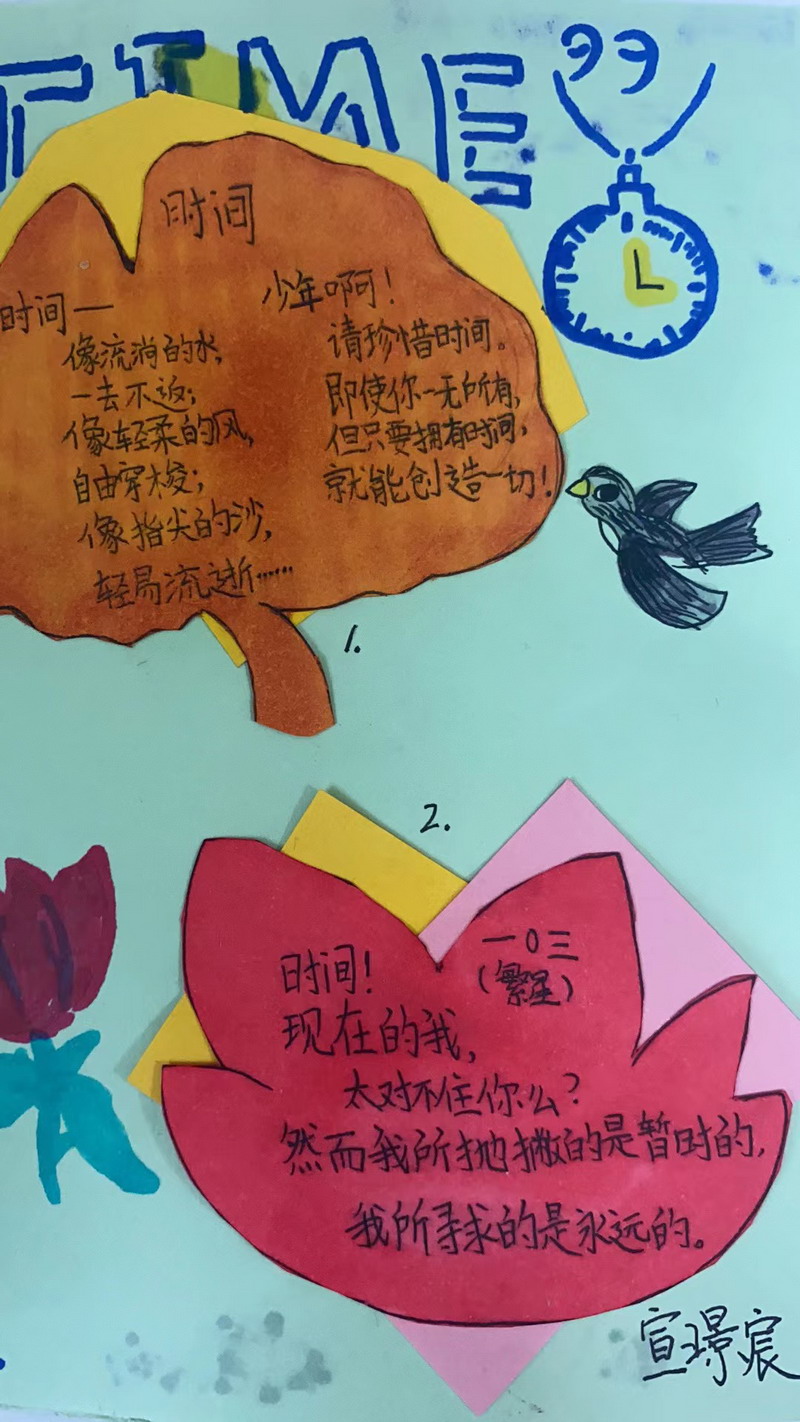 TIME
时间
时间一
像流淌的水,
一去不返;
像轻柔的风,
自由穿梭;
像指尖的沙,
轻易流逝……
少年啊!
请珍惜时间。
即使你一无所有,
但只要拥有时间,
就能创造一切!
1.
2.
一0三
(繁星)
时间!
现在的我,
太对不住你么?
然而我所抛撇的是暂时的,
我所寻求的是永远的。
宣璟宸